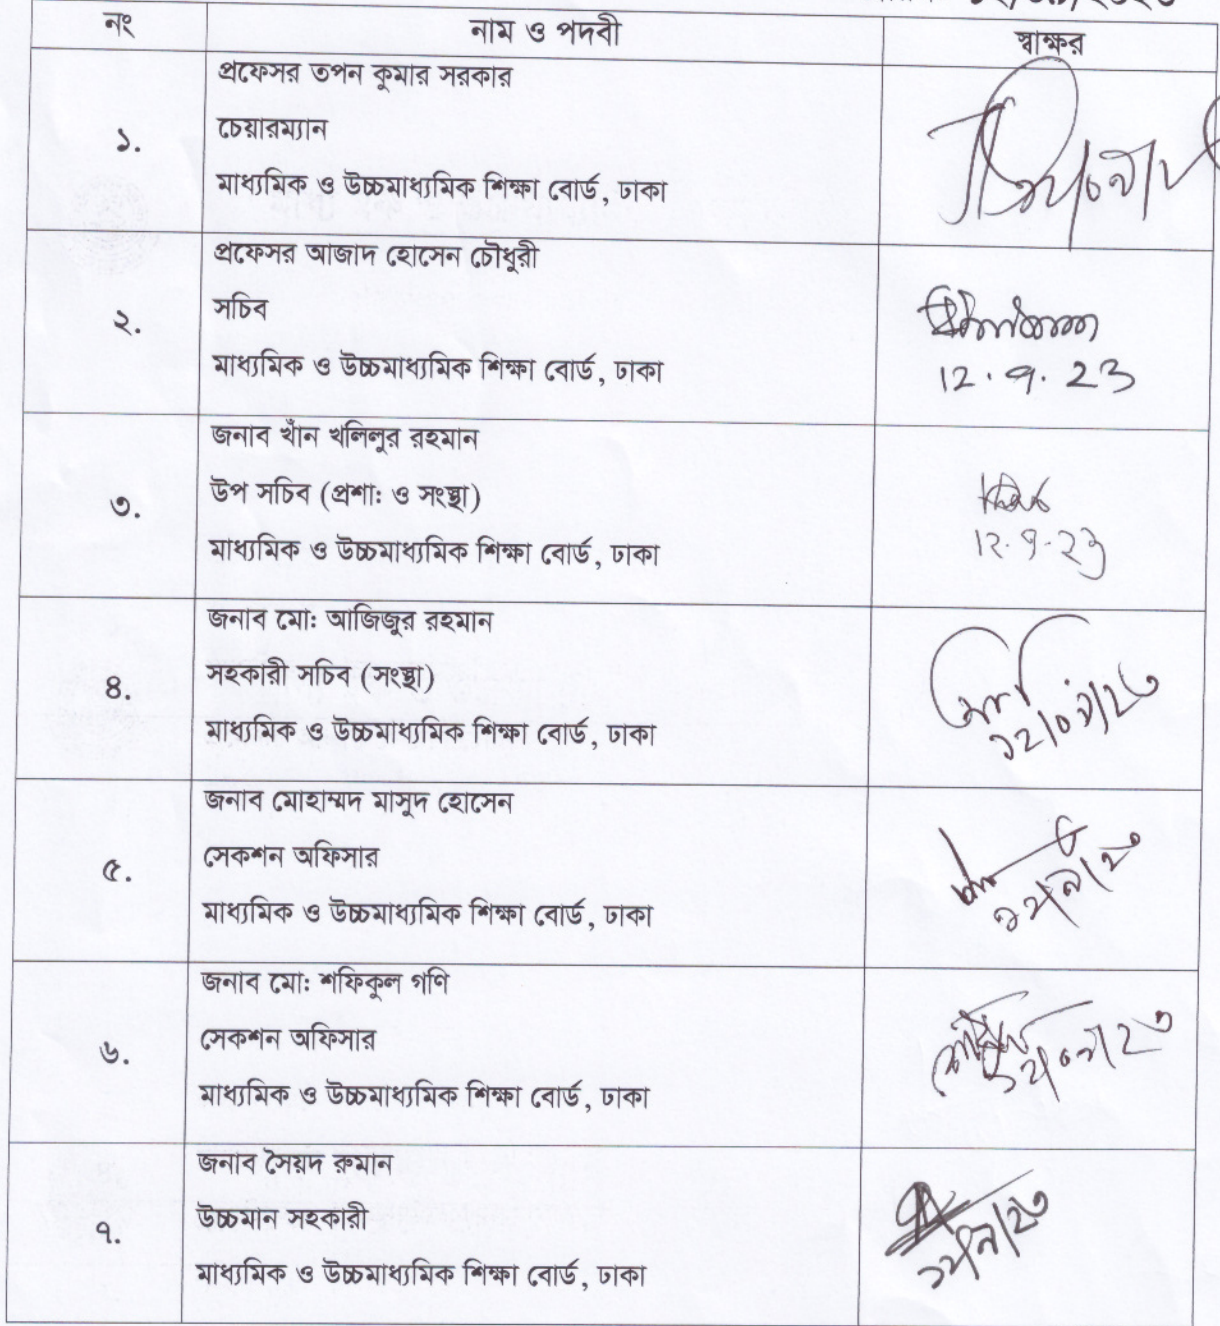 নং নাম ও পদবী স্বাক্ষর
প্রফেসর তপন কুমার সরকার
১. চেয়ারম্যান
মাধ্যমিক ও উচ্চমাধ্যমিক শিক্ষা বোর্ড, ঢাকা
প্রফেসর আজাদ হোসেন চৌধুরী
২. সচিব
মাধ্যমিক ও উচ্চমাধ্যমিক শিক্ষা বোর্ড, ঢাকা
12.9.23
জনাব খাঁন খলিলুর রহমান
৩. উপ সচিব (প্রশা: ও সংস্থা)
মাধ্যমিক ও উচ্চমাধ্যমিক শিক্ষা বোর্ড, ঢাকা
12.9.23
জনাব মো: আজিজুর রহমান
৪. সহকারী সচিব (সংস্থা)
মাধ্যমিক ও উচ্চমাধ্যমিক শিক্ষা বোর্ড, ঢাকা
১২/০৯/২৩
জনাব মোহাম্মদ মাসুদ হোসেন
৫. সেকশন অফিসার
মাধ্যমিক ও উচ্চমাধ্যমিক শিক্ষা বোর্ড, ঢাকা
জনাব মো: শফিকুল গণি
৬. সেকশন অফিসার
মাধ্যমিক ও উচ্চমাধ্যমিক শিক্ষা বোর্ড, ঢাকা
জনাব সৈয়দ রুমান
৭. উচ্চমান সহকারী
মাধ্যমিক ও উচ্চমাধ্যমিক শিক্ষা বোর্ড, ঢাকা